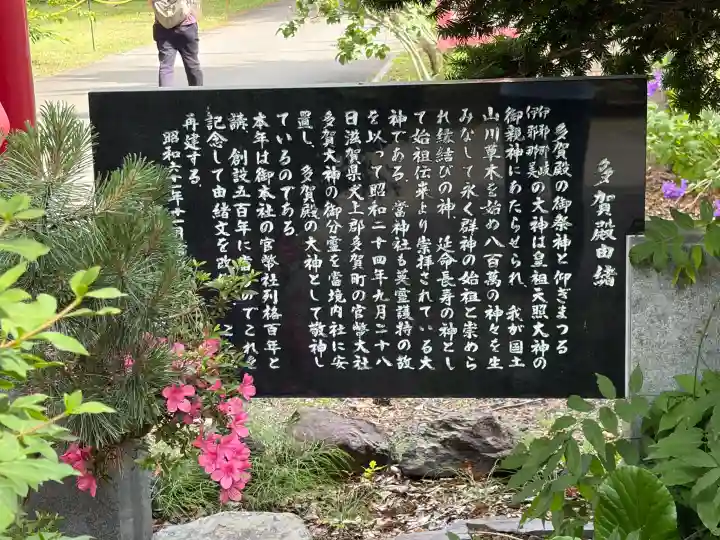 多賀殿由緒
多賀殿の御祭神と仰ぎまつる
伊邪那岐
伊邪那美の大神は皇祖天照大神の
御親神にあたらせられ、我が国土
山川草木を始め八百萬の神々を生
みなして永く群神の始祖と崇めら
れ縁結びの神、延命長寿の神とし
て始祖伝来より崇拝されている大
神である。當神社も英霊護持の故
を以って昭和二十四年九月二十八
日滋賀県犬上郡多賀町の官幣大社
多賀大神の御分霊を當境内社に安
置し、多賀殿の大神として敬神し
ているのである。
本年は御本社の官幣社列格百年と
講、創設五百年に當るのでこれを
記念して由緒文を改
再建する。
昭和六一年十一月